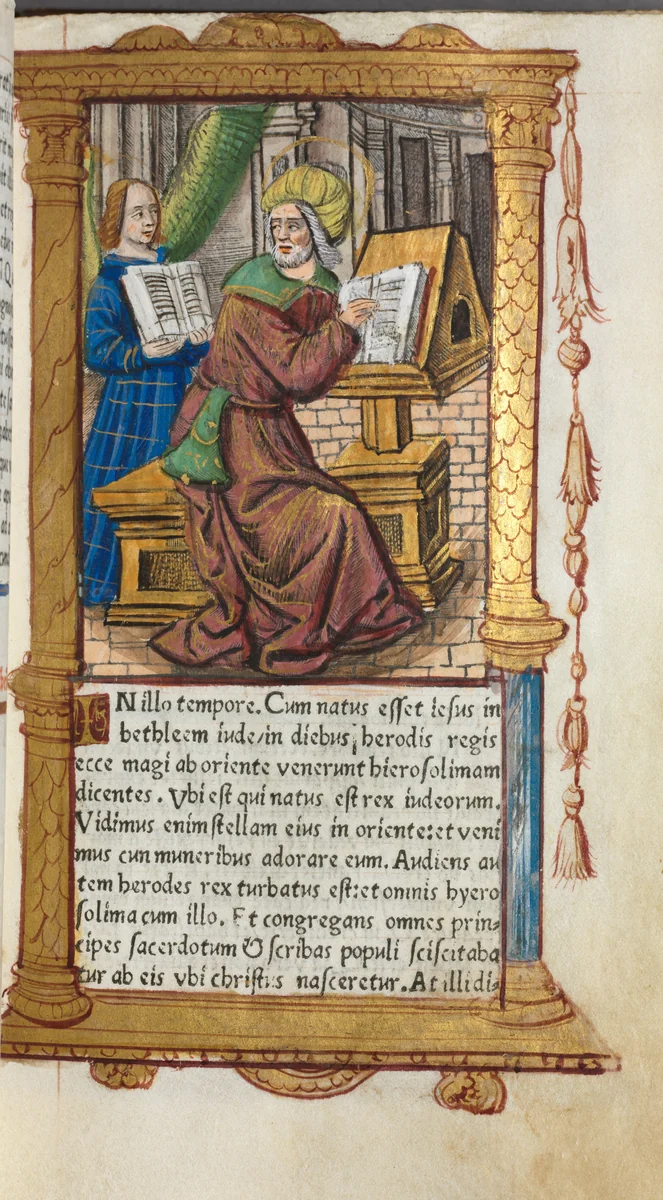 IN illo tempore. Cum natus esset iesus in
bethleem iude/in diebus herodis regis
ecce magi ab oriente venerunt hierosolimam
dicentes. Vbi est qui natus est rex iudeorum.
Vidimus enim stellam eius in oriente: et veni
mus cun muneribus adorare eum. Audiens au
tem herodes rex turbatus est: et omnis hyero
solima cum illo. Et congregans omnes prin-
cipes sacerdotum & scribas populi sciscitaba
tur ab eis vbi christus nasceretur. At illi di-